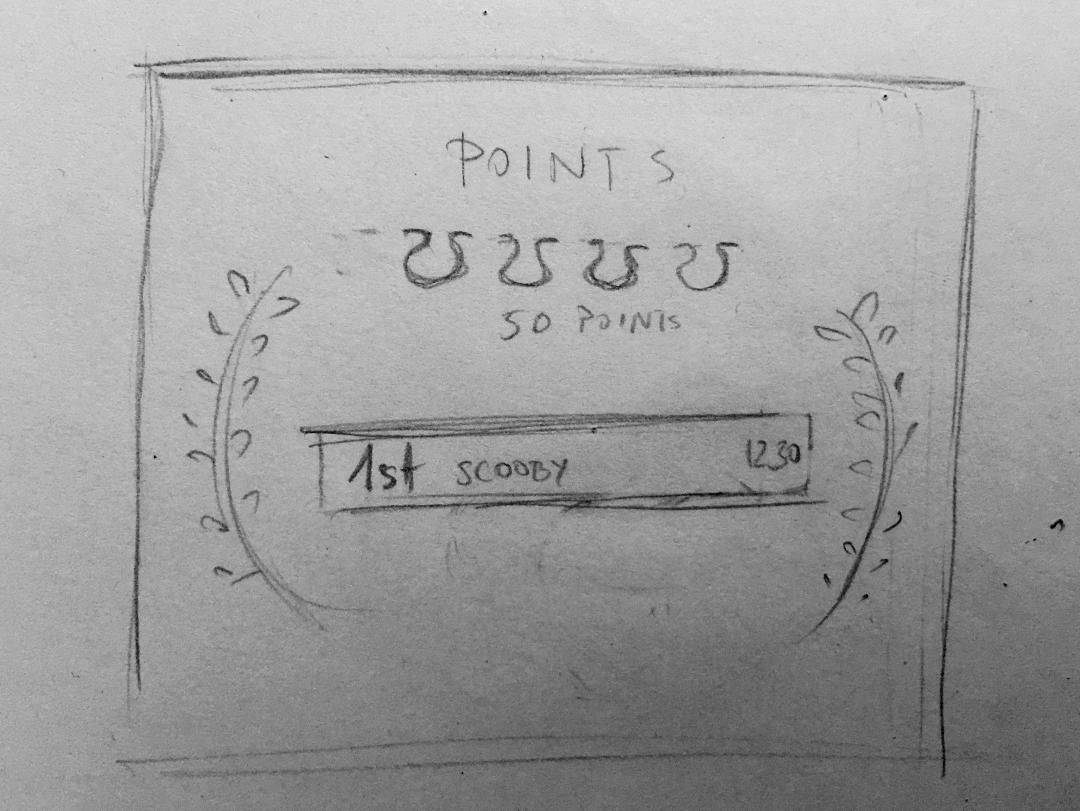 POINTS
50 POINTS
1st SCOOBY 1230